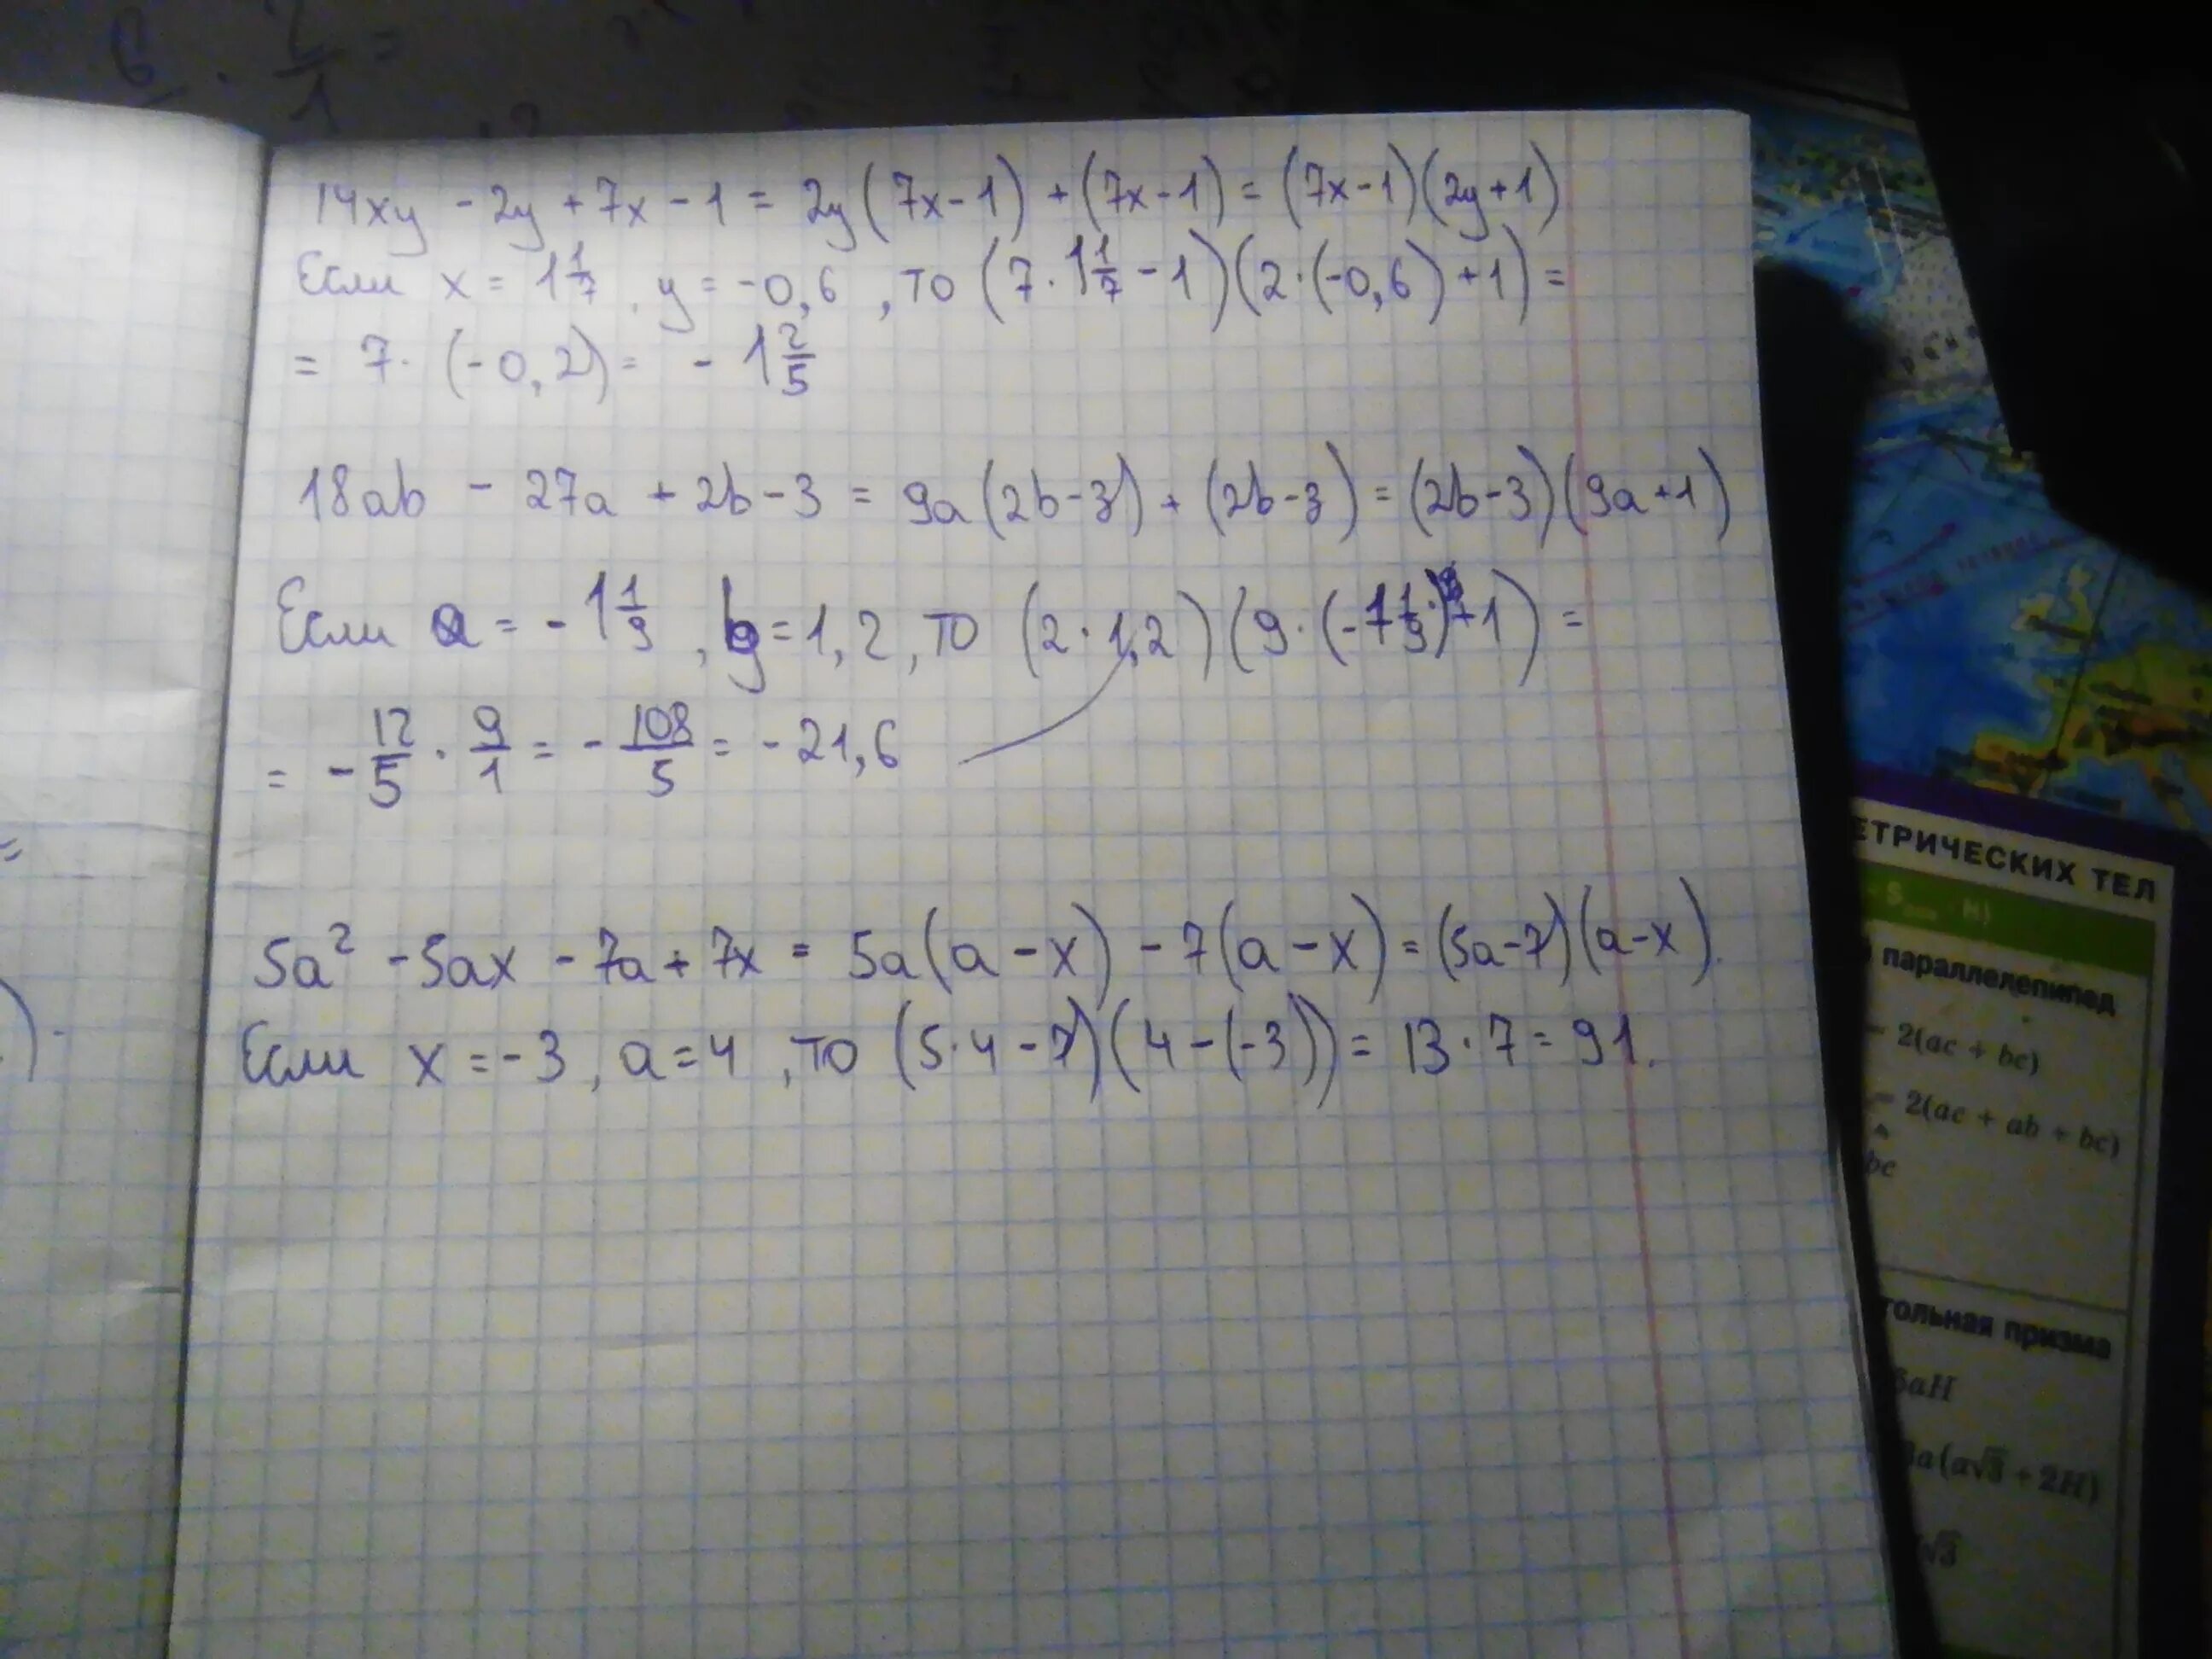 14xy - 2y + 7x - 1 = 2y(7x-1) + (7x-1) = (7x-1)(2y+1)
Если x = 1 1/7, y = -0,6, то (7·1 1/7 - 1)(2·(-0,6)+1) =
= 7·(-0,2) = -1 2/5
18ab - 27a + 2b - 3 = 9a(2b-3) + (2b-3) = (2b-3)(9a+1)
Если a = -1 1/9, b = 1,2, то (2·1,2)(9·(-1 1/9)+1) =
= - 12/5 · 9/1 = - 108/5 = -21,6
5a² - 5ax - 7a + 7x = 5a(a-x) - 7(a-x) = (5a-7)(a-x).
Если x = -3, a = 4, то (5·4-7)(4-(-3)) = 13·7 = 91.
ЕТРИЧЕСКИХ ТЕЛ
параллелепипед
= 2(ac + bc)
= 2(ac + ab + bc)
bc
гольная призма
6aH
3a(a√3 + 2H)
√3